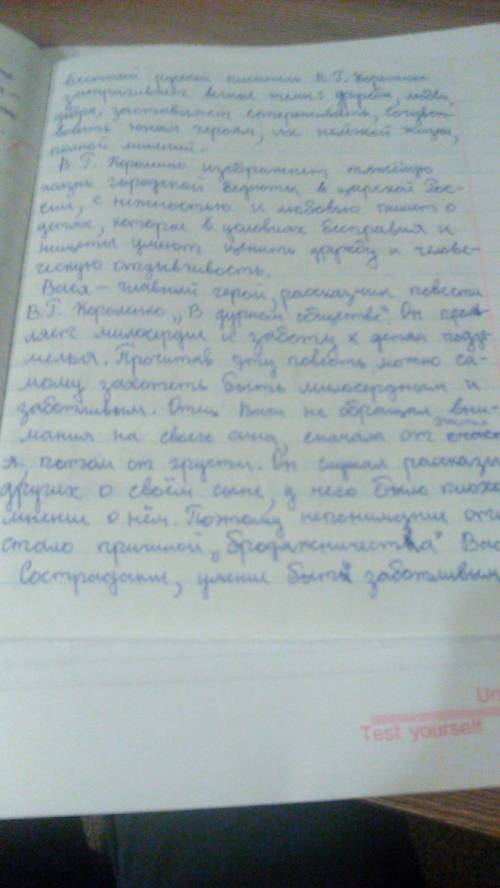 вестный русский писатель В.Г. Короленко
затрагивает вечные темы: дружба, любви,
добра, заставляет сопереживать, сочувст-
вовать юным героям, их нелёгкой жизни,
полной лишений.
В.Г. Короленко изображает тяжёлую
жизнь городской бедноты в царской Рос-
сии, с нежностью и любовью пишет о
детях, которые в условиях бесправия и
нищеты умеют ценить дружбу и челове-
ческую отзывчивость.
Вася – главный герой, рассказчик повести
В.Г. Короленко „В дурном обществе". Он прояв-
ляет милосердие и заботу к детям подзе-
мелья. Прочитав эту повесть, можно са-
мому захотеть быть милосердным и
заботливым. Отец Васи не обращал вни-
мания на своего сына, сначала от счаст
я потом от грусти. Он слушал рассказы
других о своём сыне, у него было плохо
мнение о нём. Поэтому непонимание отц
стало причиной „бродяжничества" Вас
Сострадание, умение быть заботливым
Un
Test yourself